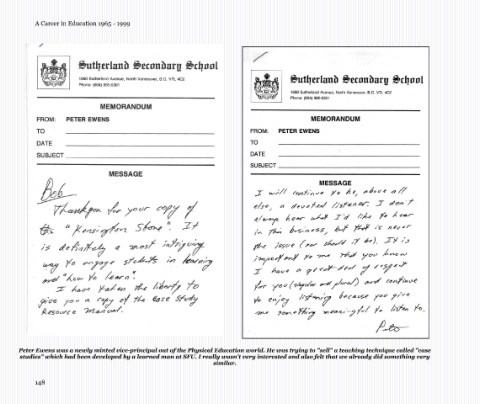 A Career in Education 1965 - 1999
Sutherland Secondary School
1860 Sutherland Avenue, North Vancouver, B.C. V7L 4C2
MEMORANDUM
FROM: PETER EWENS
TO
DATE
SUBJECT
MESSAGE
Bob
Thankyou for your copy of
"Kensington Stone". It
is definitely a most intriguing
way to engage students in learning
and "how to learn".
I have taken the liberty to
give you a copy of the Case Study
Resource Manual.
Sutherland Secondary School
1860 Sutherland Avenue, North Vancouver, B.C. V7L 4C2
MEMORANDUM
FROM: PETER EWENS
TO
DATE
SUBJECT
MESSAGE
I will continue to be, above all
else, a devoted listener. I don't
always hear what I'd like to hear
in this business, but that is never
the issue (nor should it be). It is
important to me that you know
I have a great deal of respect
for you (singular and plural) and continue
to enjoy listening because you give
me something meaningful to listen to.
Pete
Peter Ewens was a newly minted vice-principal out of the Physical Education world. He was trying to "sell" a teaching technique called "case
studies" which had been developed by a learned man at SFU. I really wasn't very interested and also felt that we already did something very
similar.
148